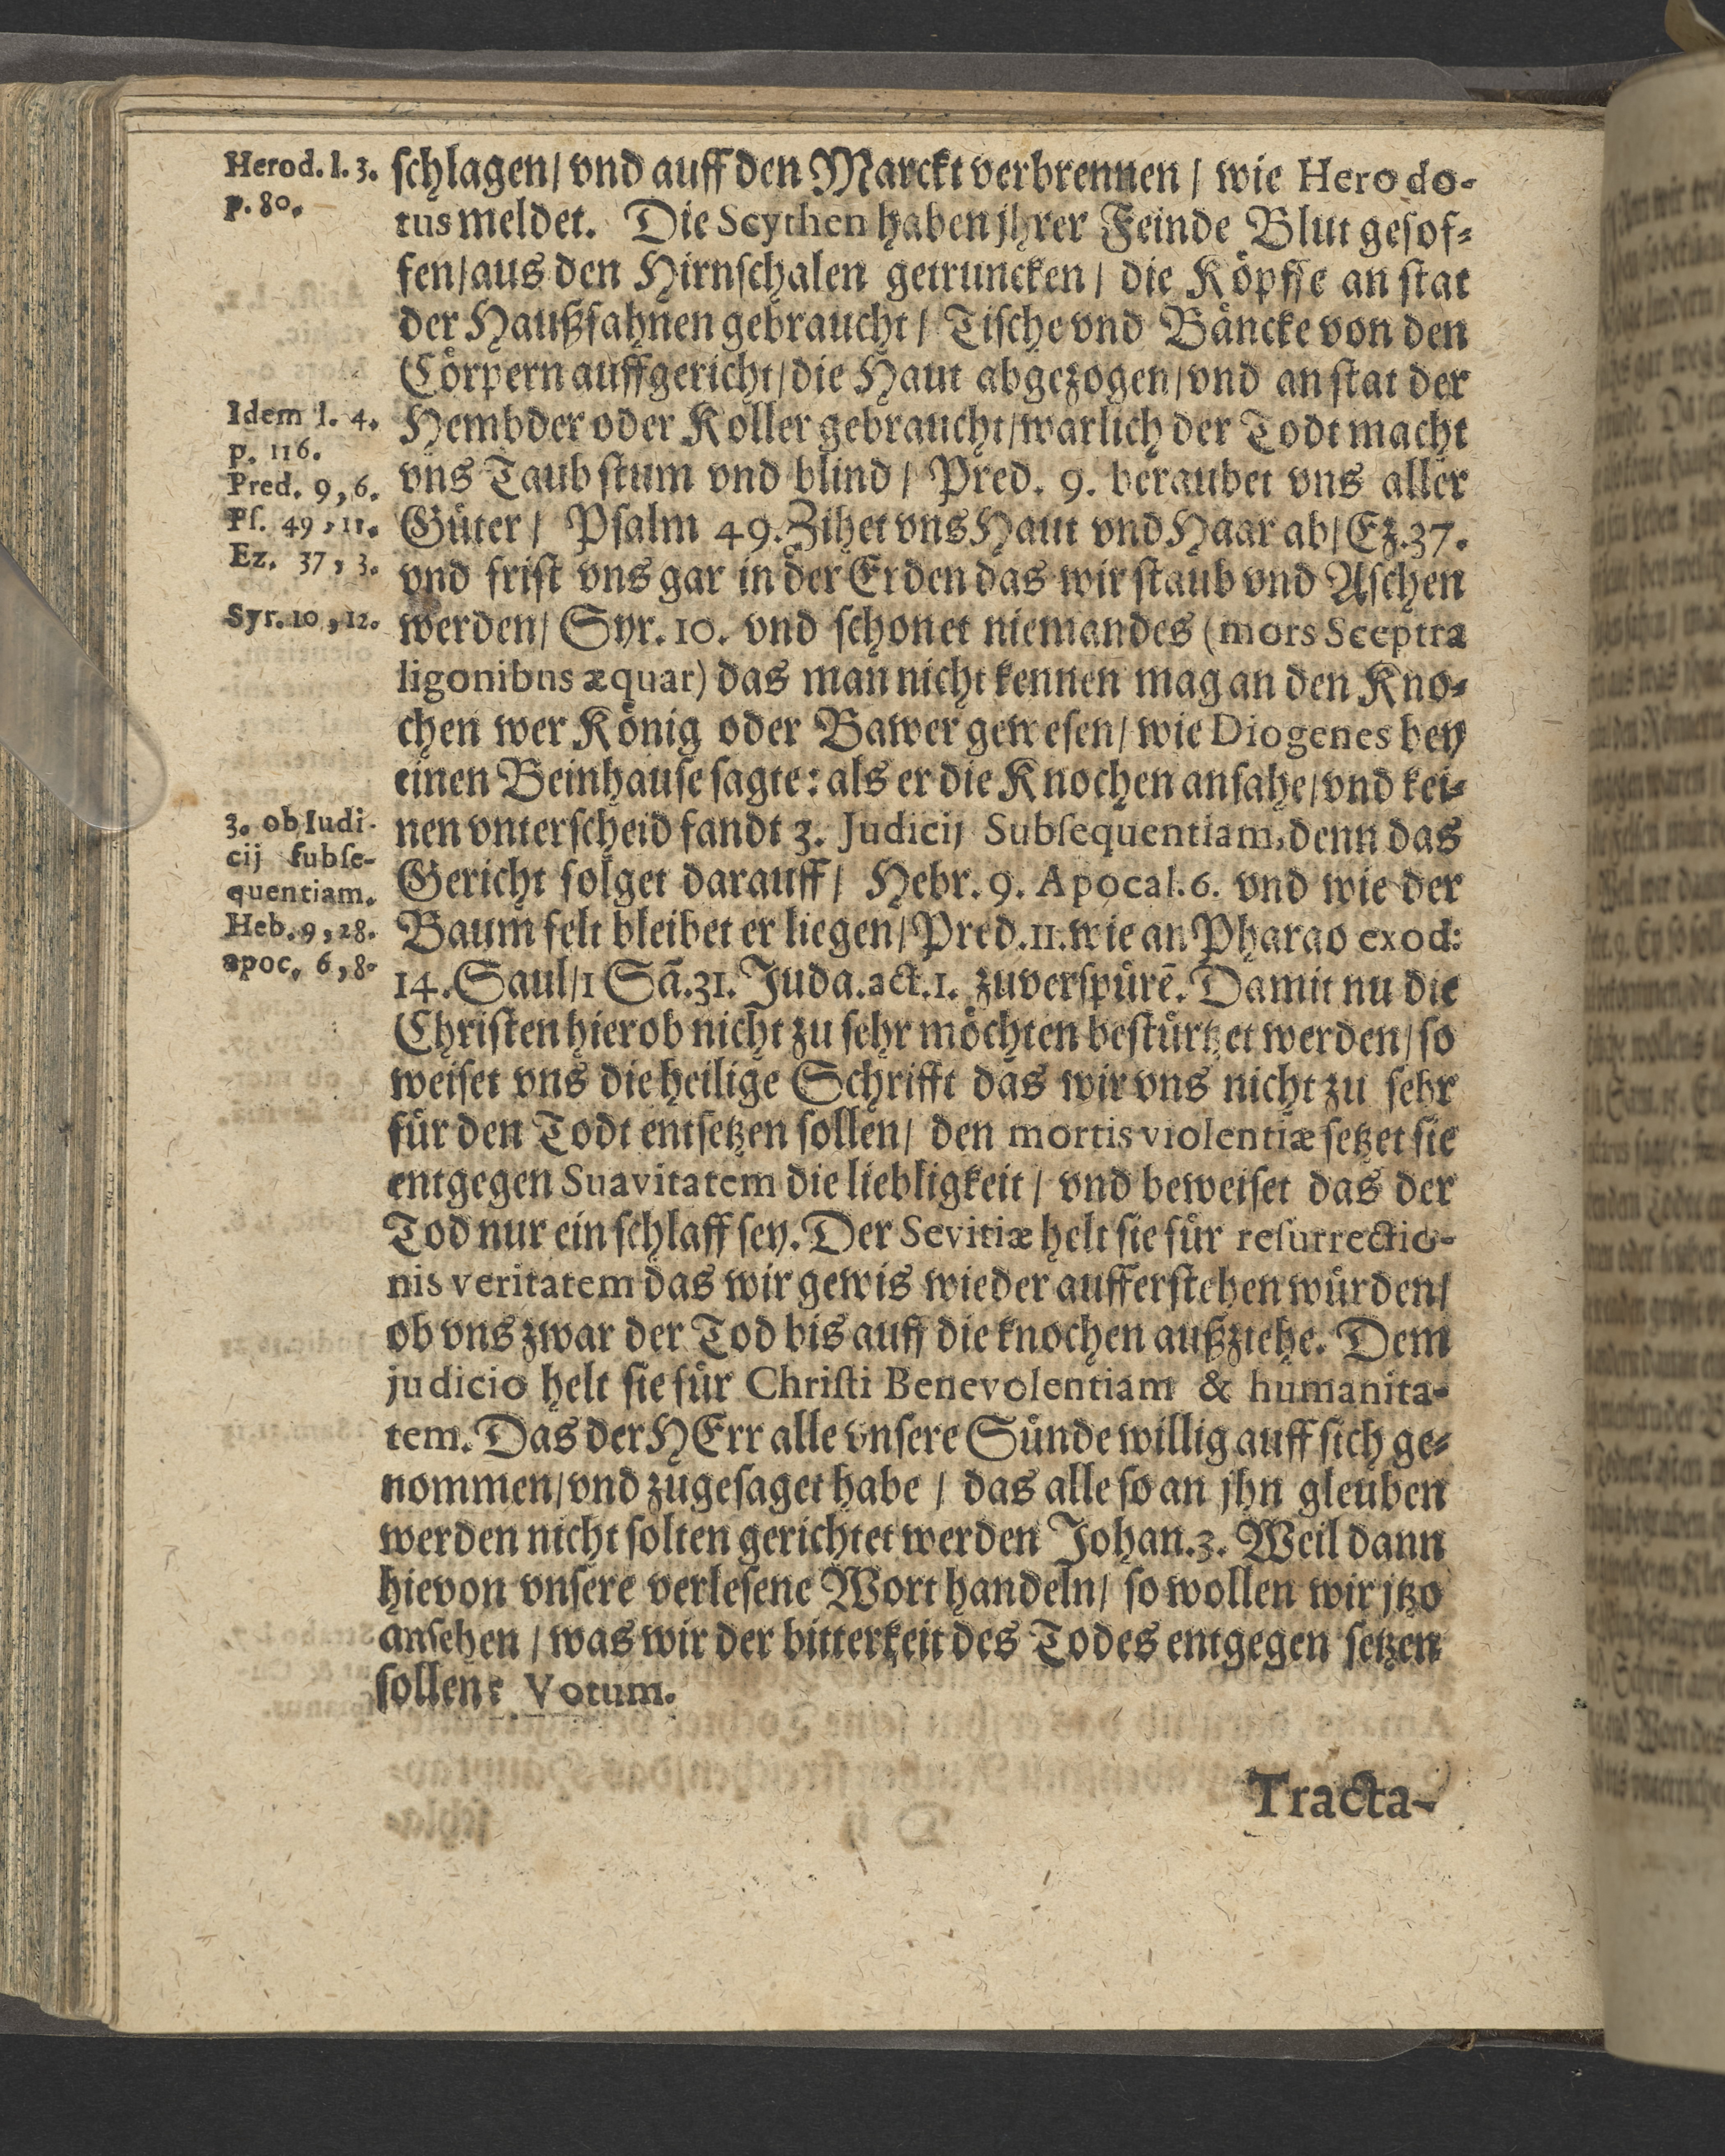 Herod. l. 3.
p. 80.
Idem l. 4.
p. 116.
Pred. 9, 6.
Pſ. 49, 11.
Ez. 37, 3.
Syr. 10, 12.
3. ob Iudi-
cij ſubſe-
quentiam.
Heb. 9, 28.
apoc. 6, 8.
ſchlagen/ vnd auff den Marckt verbrennen / wie Herodo-
tus meldet. Die Scythen haben jhrer Feinde Blut geſof-
fen/ aus den Hirnſchalen getruncken / die Koͤpffe an ſtat
der Haußfahnen gebraucht / Tiſche vnd Baͤncke von den
Coͤrpern auffgericht/ die Haut abgezogen/ vnd an ſtat der
Hembder oder Koller gebraucht/ warlich der Todt macht
vns Taub ſtum vnd blind / Pred. 9. beraubet vns aller
Guͤter / Pſalm 49. Zihet vns Haut vnd Haar ab/ Ez. 37.
vnd friſt vns gar in der Erden das wir ſtaub vnd Aſchen
werden/ Syr. 10. vnd ſchonet niemandes (mors Sceptra
ligonibus æquat) das man nicht kennen mag an den Kno-
chen wer Koͤnig oder Bawer geweſen/ wie Diogenes bey
einen Beinhauſe ſagte: als er die Knochen anſahe/ vnd kei-
nen vnterſcheid fandt 3. Judicij Subſequentiam, denn das
Gericht folget darauff / Hebr. 9. Apocal. 6. vnd wie der
Baum felt bleibet er liegen/ Pred. 11. wie an Pharao exod:
14. Saul/ 1 Sã. 31. Juda. act. 1. zuverſpuͤrẽ. Damit nu die
Chriſten hierob nicht zu ſehr moͤchten beſtuͤrtzet werden/ ſo
weiſet vns die heilige Schrifft das wir vns nicht zu ſehr
fuͤr den Todt entſetzen ſollen/ den mortis violentiæ ſetzet ſie
entgegen Suavitatem die liebligkeit / vnd beweiſet das der
Tod nur ein ſchlaff ſey. Der Sevitiæ helt ſie fuͤr reſurrectio-
nis veritatem das wir gewis wieder aufferſtehen wuͤrden/
ob vns zwar der Tod bis auff die knochen außziehe. Dem
judicio helt ſie fuͤr Chriſti Benevolentiam & humanita-
tem. Das der HErr alle vnſere Suͤnde willig auff ſich ge-
nommen/ vnd zugeſaget habe / das alle ſo an jhn gleuben
werden nicht ſolten gerichtet werden Johan. 3. Weil dann
hievon vnſere verleſene Wort handeln/ ſo wollen wir jtzo
anſehen / was wir der bitterkeit des Todes entgegen ſetzen
ſollen? Votum.
Tracta-